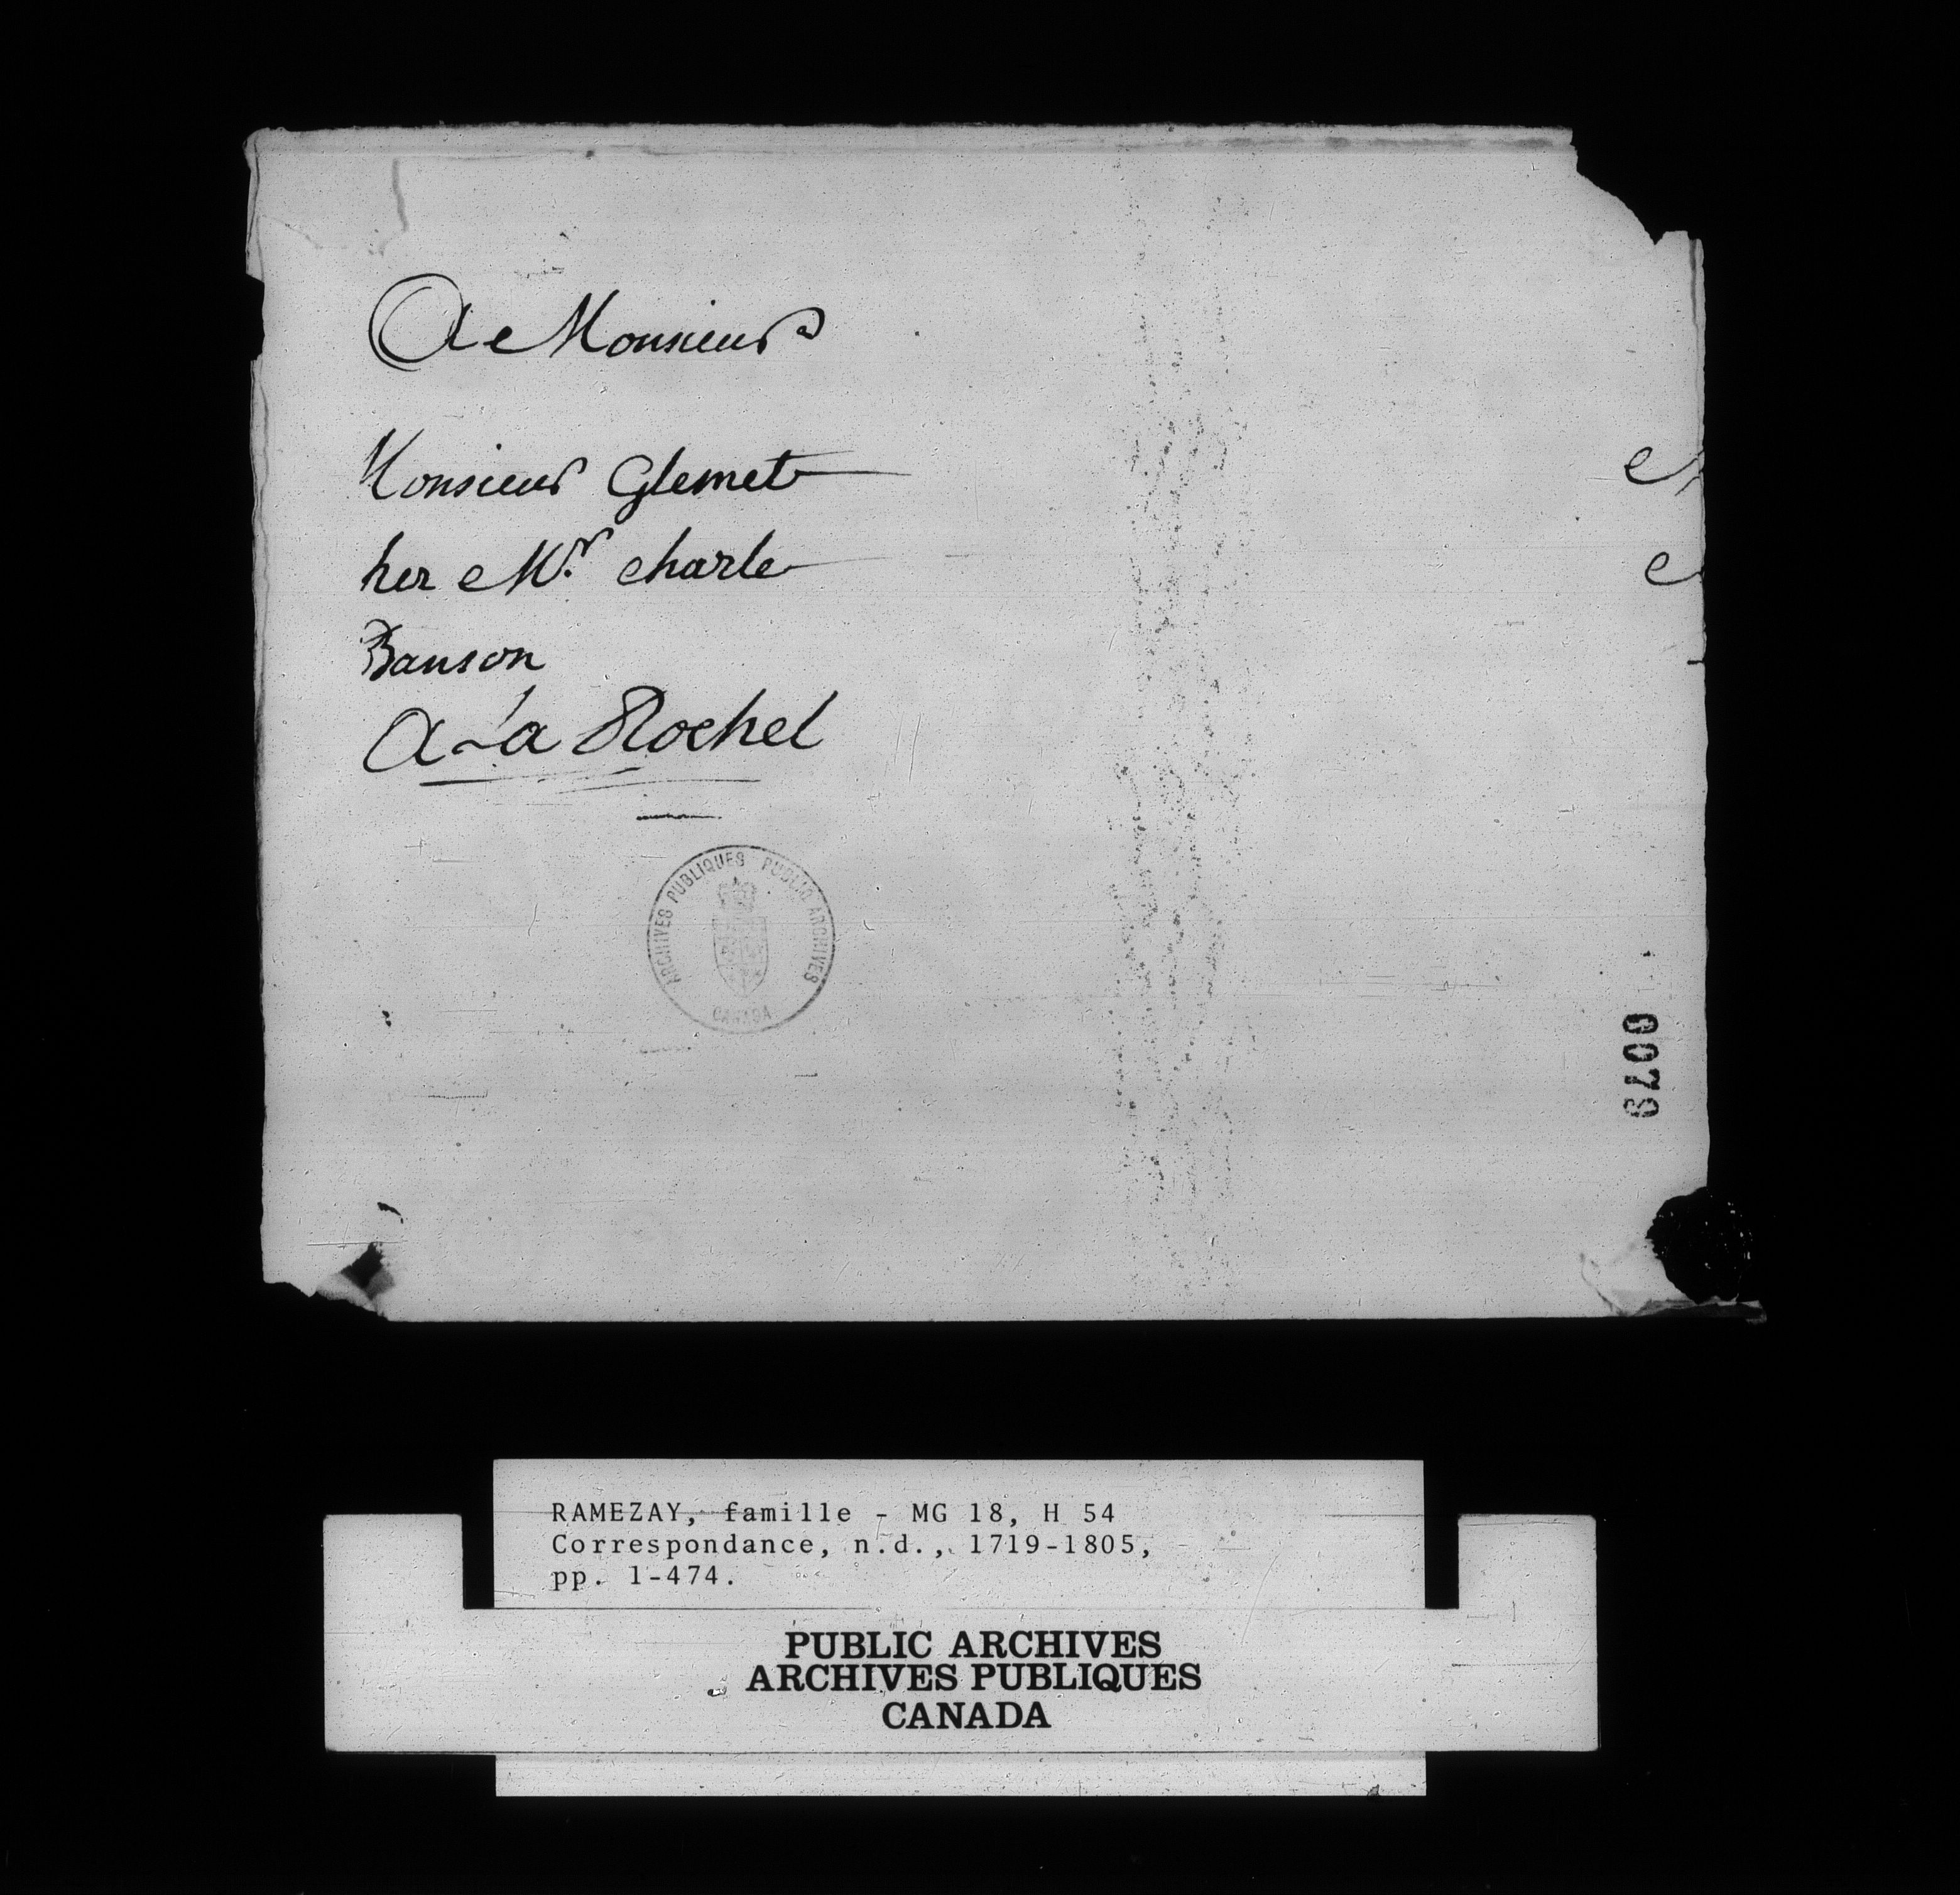 A Monsieur
Monsieur Glemet
her Mr. charle
Banson
A la Rochel
ARCHIVES PUBLIQUES PUBLIC ARCHIVES
CANADA
0079
RAMEZAY, famille - MG 18, H 54
Correspondance, n.d., 1719-1805,
pp. 1-474.
PUBLIC ARCHIVES
ARCHIVES PUBLIQUES
CANADA